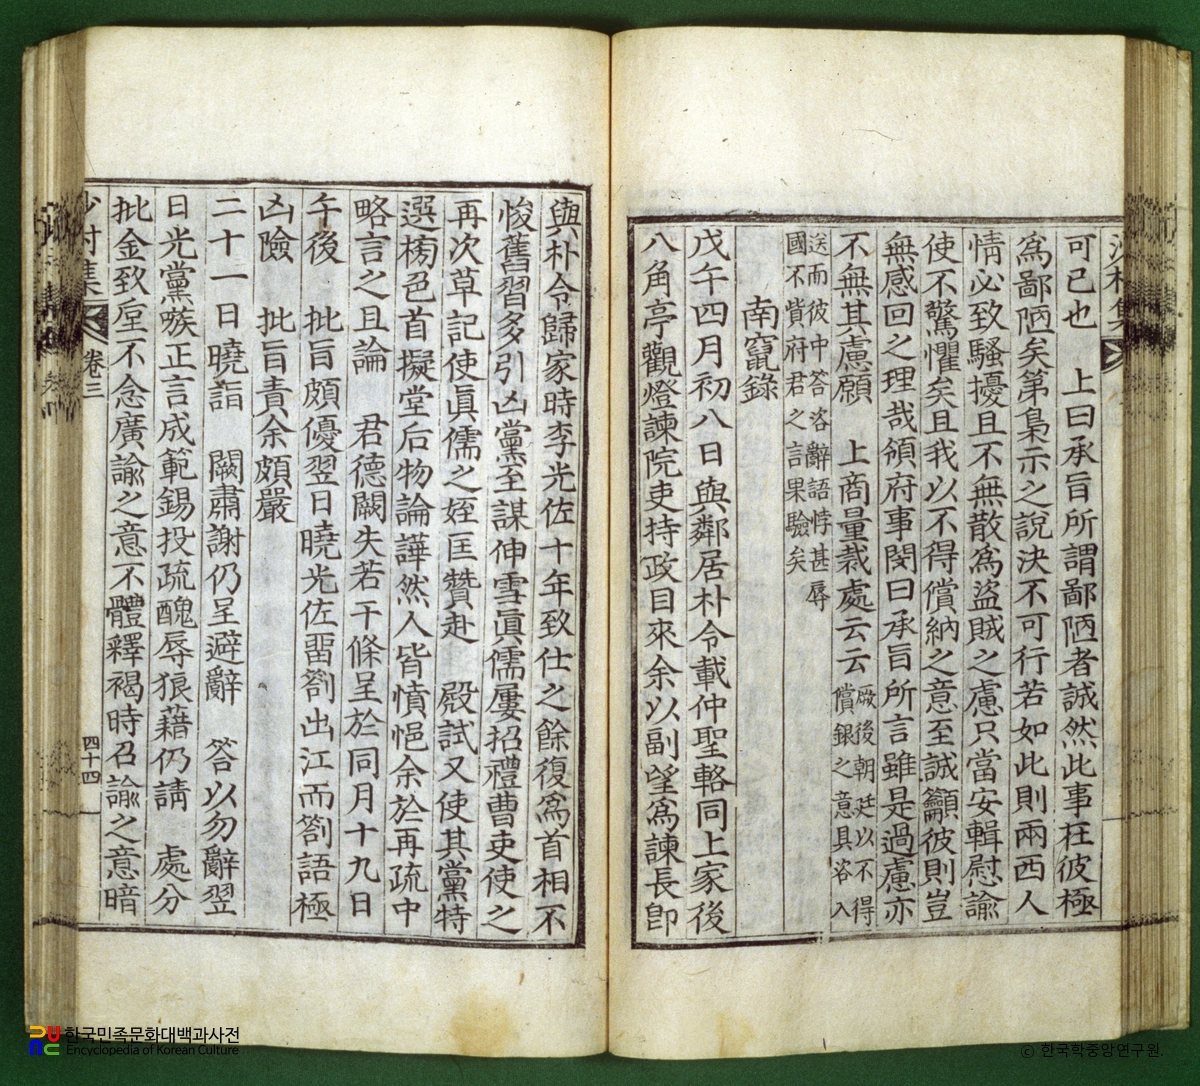 沙村集
可已也 上曰承旨所謂鄙陋者誠然此事在彼極
爲鄙陋矣第梟示之說決不可行若如此則兩西人
情必致騷擾且不無散爲盜賊之慮只當安輯慰諭
使不驚懼矣且我以不得償納之意至誠籲彼則豈
無感回之理哉領府事閔曰承旨所言雖是過慮亦
不無其慮願 上商量裁處云云厥後朝廷以不得償銀之意具咨入
送而彼中答咨辭語悖甚辱
國不貲府君之言果驗矣
南竄錄
戊午四月初八日與鄰居朴令載仲聖輅同上家後
八角亭觀燈諫院吏持政目來余以副望爲諫長卽
與朴令歸家時李光佐十年致仕之餘復爲首相不
悛舊習多引凶黨至謀伸雪眞儒屢招禮曹吏使之
再次草記使眞儒之姪匡贊赴 殿試又使其黨特
選槐邑首擬堂后物論譁然人皆憤悒余於再疏中
略言之且論 君德闕失若干條呈於同月十九日
午後 批旨頗優翌日曉光佐留劄出江而劄語極
凶險 批旨責余頗嚴
二十一日曉詣 闕肅謝仍呈避辭 答以勿辭翌
日光黨嗾正言成範錫投疏醜辱狼藉仍請 處分
批金致垕不念廣諭之意不體釋褐時召諭之意暗
沙村集
卷三
四十四
한국민족문화대백과사전
Encyclopedia of Korean Culture
© 한국학중앙연구원.